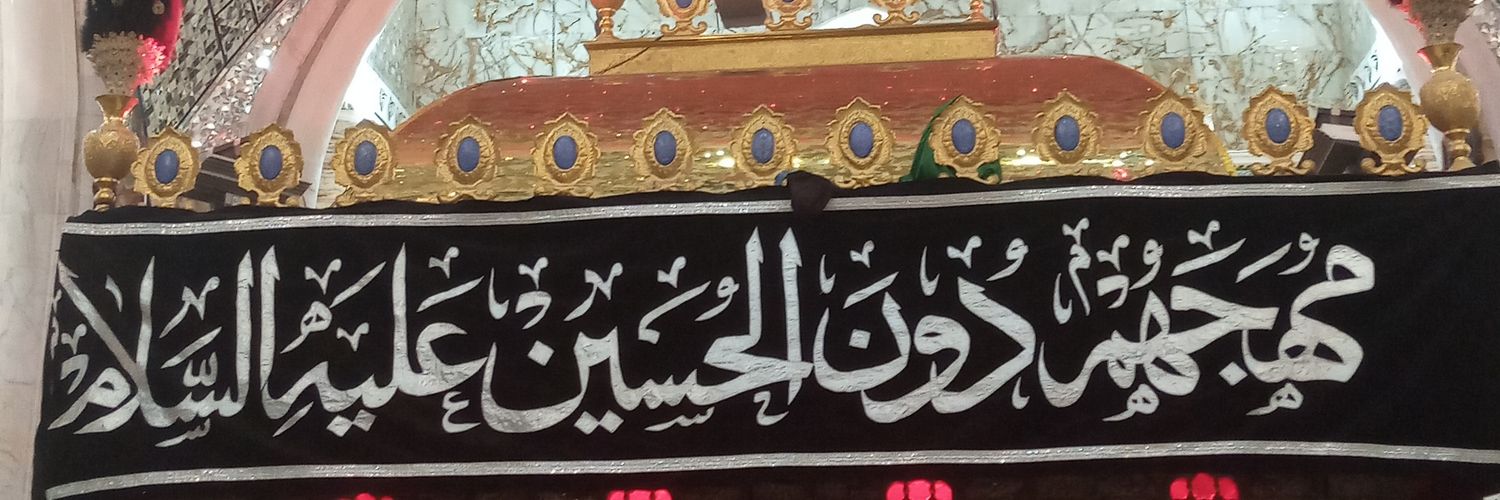 مُهَجَهُم دُونَ الحُسَينِ عَلَيهِ السَّلام